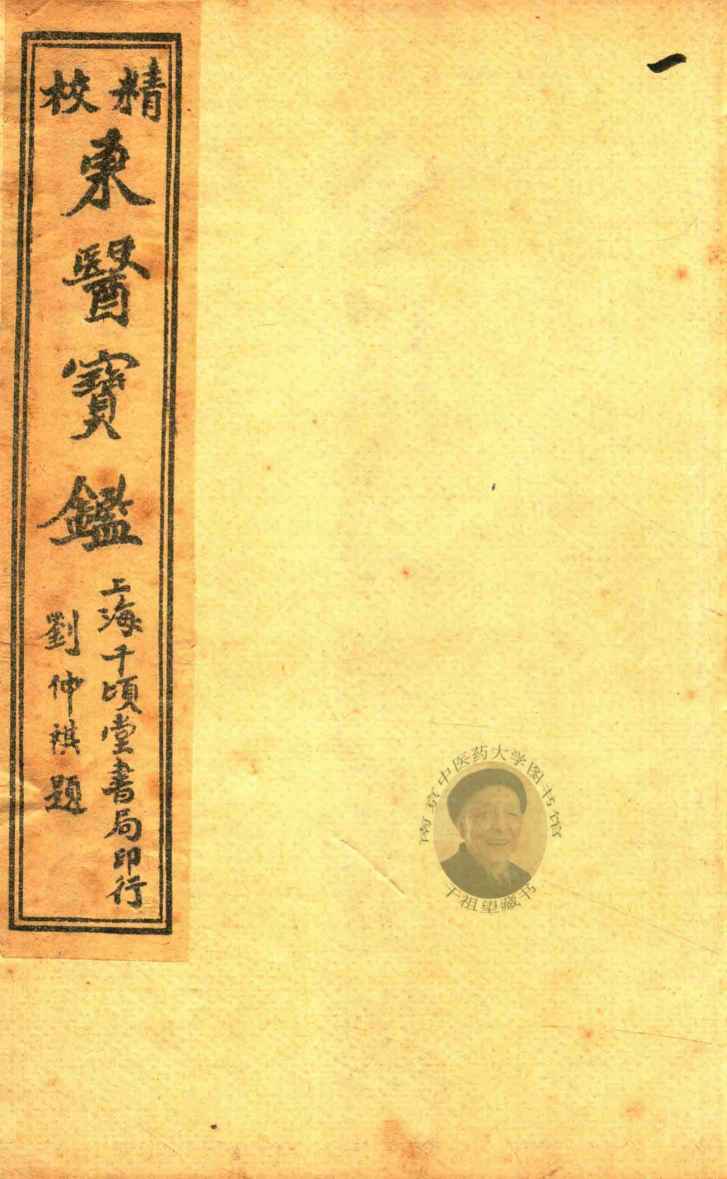 一
精校
東醫寶鑑
上海千頃堂書局印行
劉仲祺題
南京中医药大学图书馆
干祖望藏书